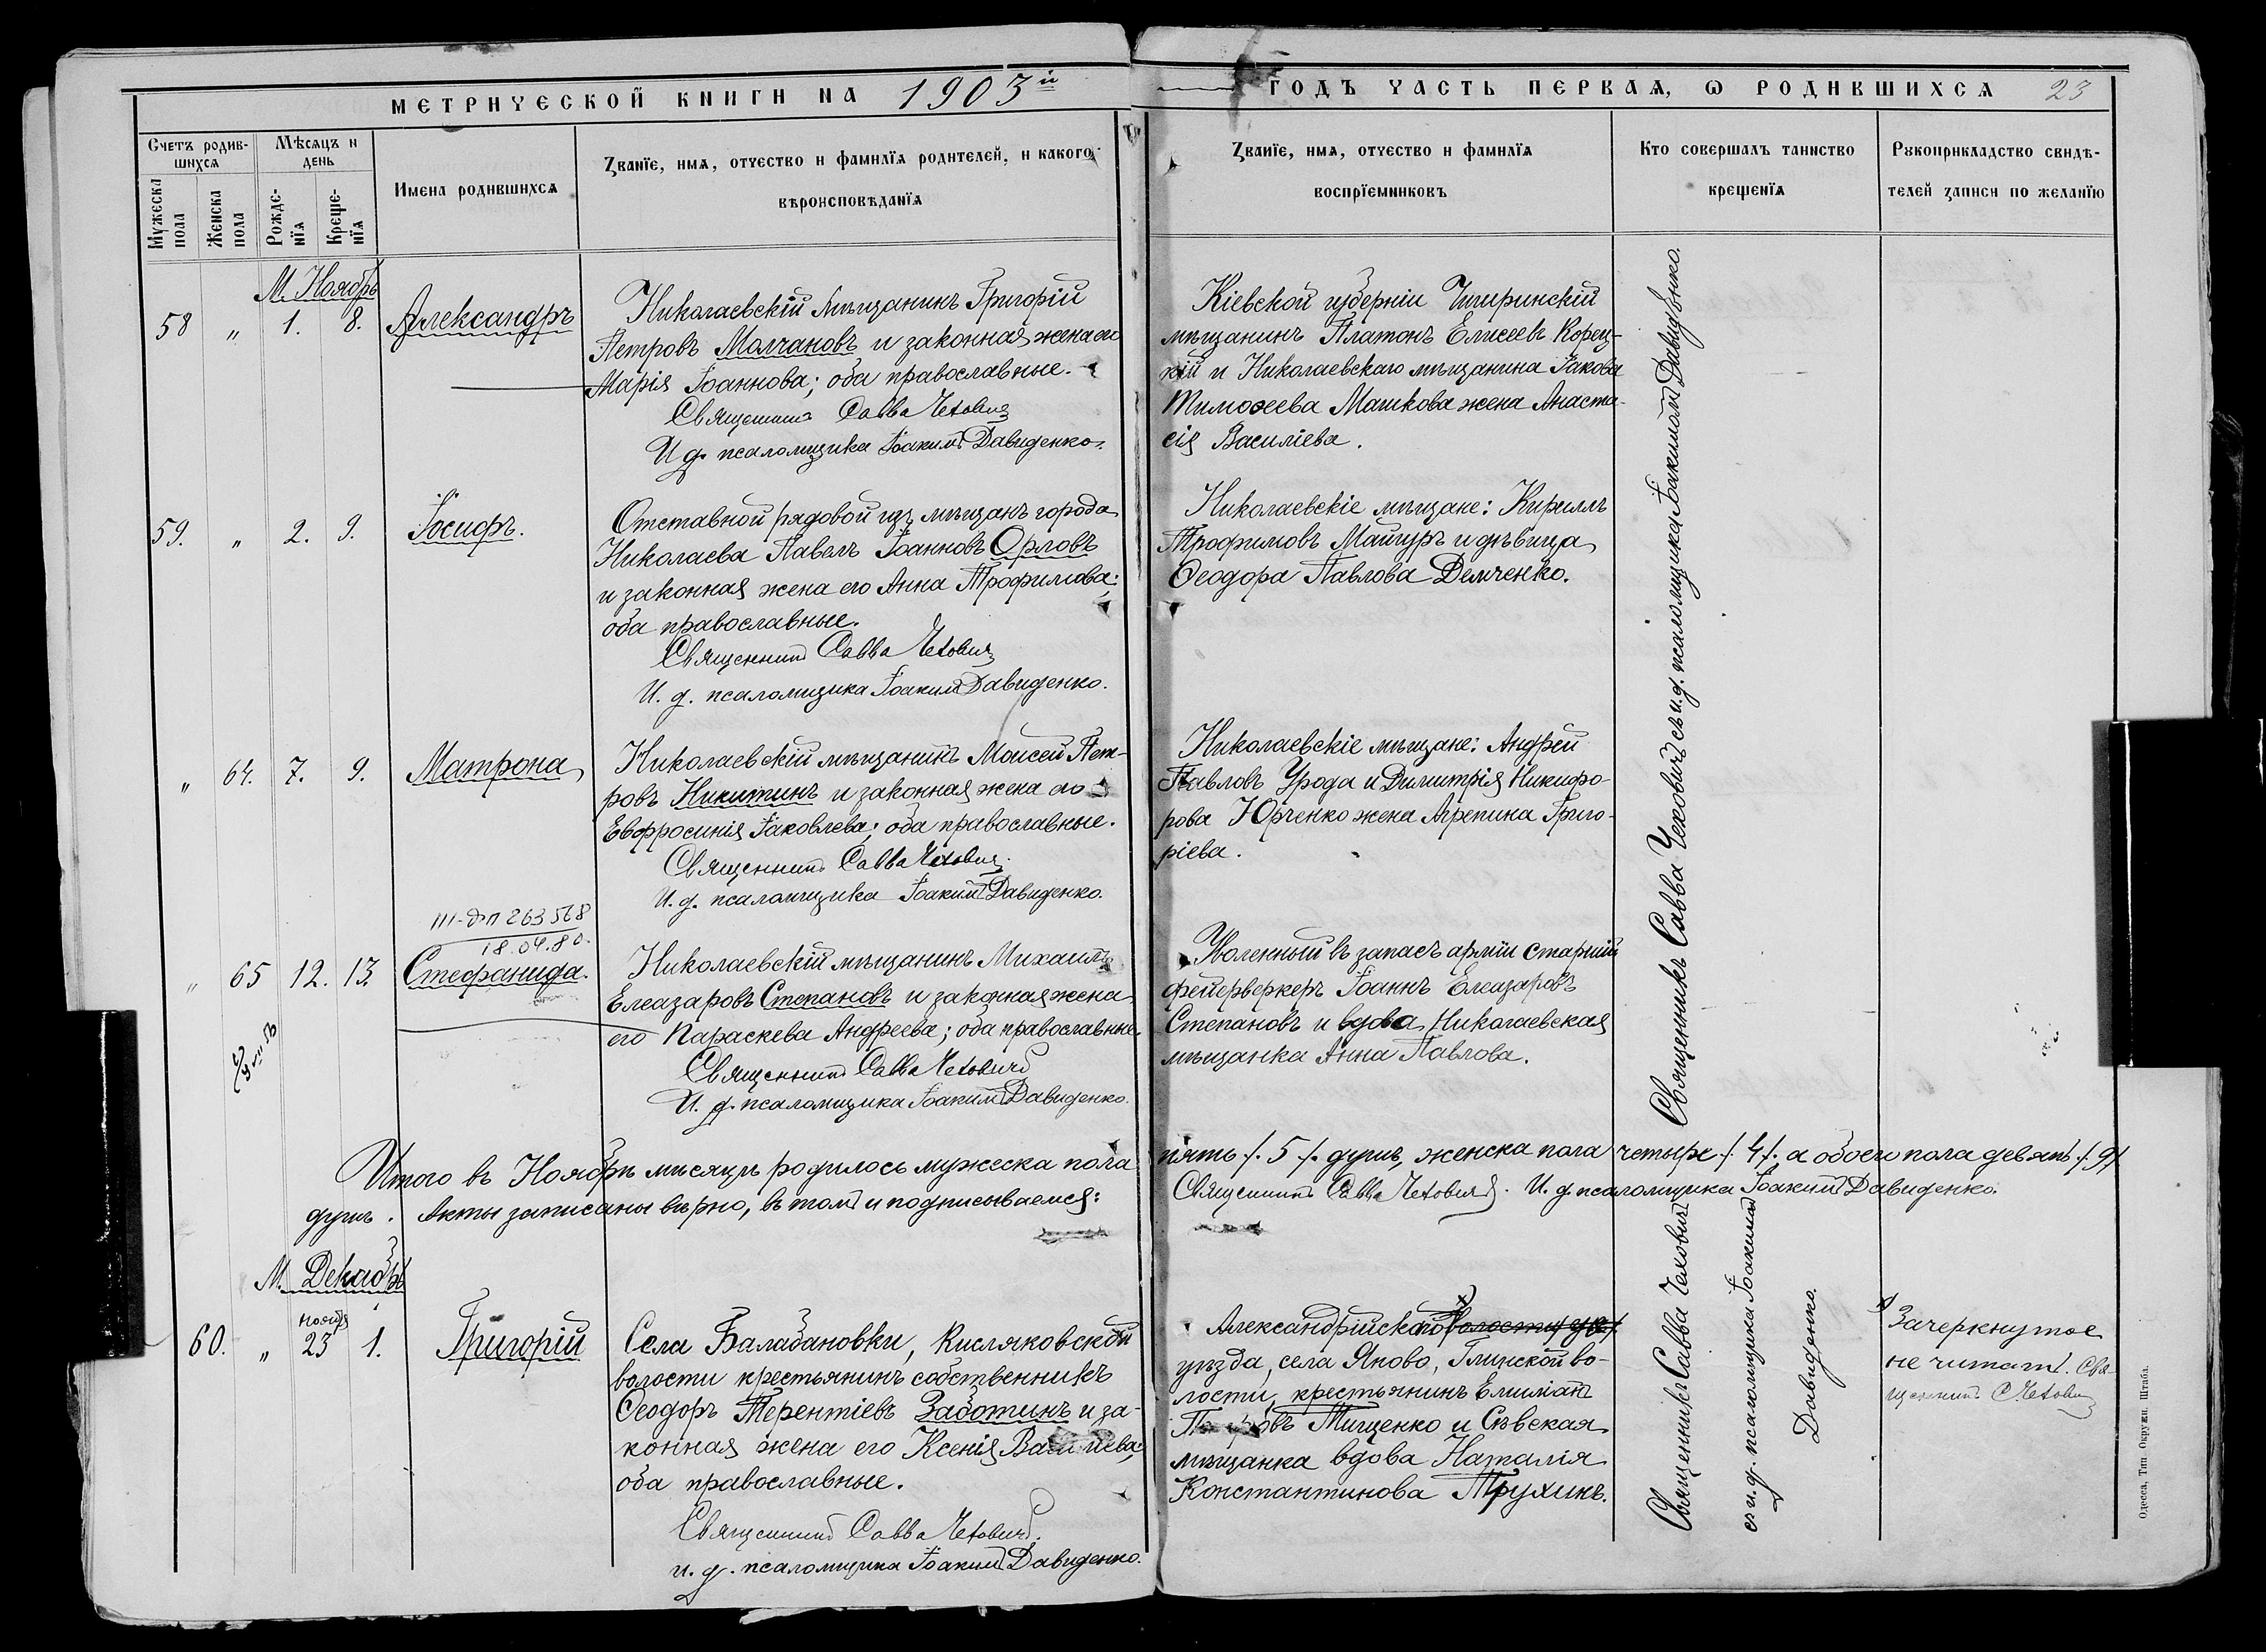 МЕТРИЧЕСКОЙ КНИГИ НА 1903й
Счетъ родив-
шихся
Мѣсяцъ и
день
Мужеска
пола
Женска
пола
Рожде-
нїя
Креще-
нїя
Имена родившихся
Званїе, имя, отчество и фамилїя родителей, и какого
вѣроисповѣданїя
М. Ноябрь
58 „ 1. 8. Александръ
Николаевскій мѣщанинъ Григорій
Петровъ Молчановъ и законная жена его
Марія Іоаннова; оба православные.
Священникъ Савва Чеховичъ
И д. псаломщика Іоакимъ Давиденко.
59. „ 2. 9. Іосифъ.
Отставной рядовой изъ мѣщанъ города
Николаева Павелъ Іоанновъ Орловъ
и законная жена его Анна Трофимова;
оба православные.
Священникъ Савва Чеховичъ
И. д. псаломщика Іоакимъ Давиденко.
„ 64. 7. 9. Матрона
Николаевскій мѣщанинъ Моисей Пет-
ровъ Никитинъ и законная жена его
Евфросинія Іаковлева; оба православные.
Священникъ Савва Чеховичъ.
И. д. псаломщика Іоакимъ Давиденко.
III-ФП 263568
18.04.80.
„ 65 12. 13. Стефанида.
Николаевскій мѣщанинъ Михаилъ
Елеазаровъ Степановъ и законная жена
его Параскева Андреева; оба православные
Священникъ Савва Чеховичъ
И. д. псаломщика Іоакимъ Давиденко.
Итого въ Ноябрѣ мѣсяцѣ родилось мужеска пола
душъ. Акты записаны вѣрно, въ томъ и подписываемся:
М. Декабрь
ноября
60. „ 23 1. Григорій
Села Балабановки, Кисляковской
волости крестьянинъ собственникъ
Ѳеодоръ Терентіевъ Заботинъ и за-
конная жена его Ксенія Васильева;
оба православные.
Священникъ Савва Чеховичъ.
и. д. псаломщика Іоакимъ Давиденко.
ГОДЪ ЧАСТЬ ПЕРВАЯ, Ѡ РОДИВШИХСЯ 23
Званїе, имя, отчество и фамилїя
воспрїемниковъ
Кто совершалъ таинство
крещенїя
Рꙋкоприкладство свидѣ-
телей записи по желанїю
Кіевской губерніи Чигиринскій
мѣщанинъ Платонъ Елисеевъ Корец-
кій и Николаевскаго мѣщанина Іакова
Тимоѳеева Машкова жена Анаста-
сія Василіева.
Николаевскіе мѣщане: Кириллъ
Трофимовъ Майгуръ и дѣвица
Ѳеодора Павлова Демченко.
Николаевскіе мѣщане: Андрей
Павловъ Урода и Димитрія Никифо-
рова Юрченко жена Агрепина Григо-
ріева.
Уволенный въ запасъ арміи старшій
фейерверкеръ Іоаннъ Елеазаровъ
Степановъ и вдова Николаевская
мѣщанка Анна Павлова.
Священникъ Савва Чеховичъ съ и. д. псаломщика Іоакимомъ Давиденко.
пять /. 5 /. душъ, женска пола четыре /. 4 /. а обоего пола девять /. 9 /
Священникъ Савва Чеховичъ. И. д. псаломщика Іоакимъ Давиденко.
Александрійскаго волости
уѣзда, села Яново, Глинской во-
лости, крестьянинъ Емиліанъ
Мищенко и Сѣвская
мѣщанка вдова Наталія
Константинова Трухинъ.
Священникъ Савва Чеховичъ
съ и. д. псаломщика Іоакимомъ
Давиденко.
х) Зачеркнутое
не читать. Свя-
щенникъ С. Чеховичъ
Одесса, Тип. Окружн. Штаба.